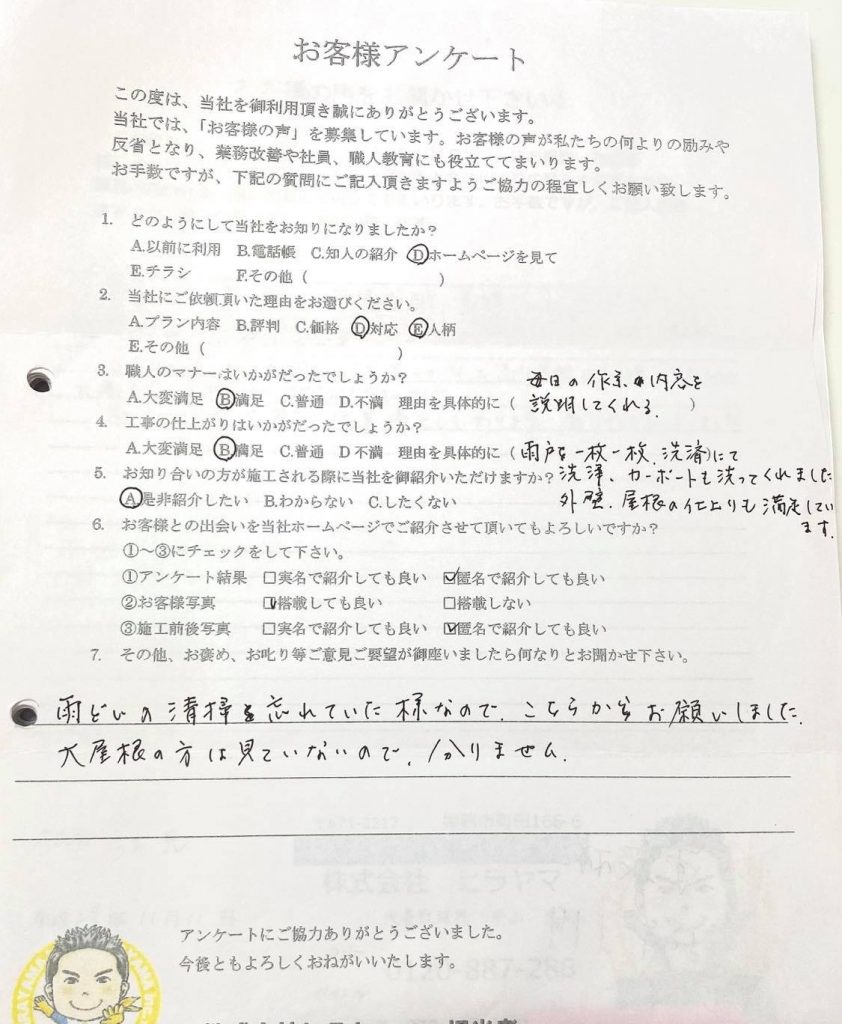 お客様アンケート
この度は、当社を御利用頂き誠にありがとうございます。
当社では、「お客様の声」を募集しています。お客様の声が私たちの何よりの励みや
反省となり、業務改善や社員、職人教育にも役立ててまいります。
お手数ですが、下記の質問にご記入頂きますようご協力の程宜しくお願い致します。
1. どのようにして当社をお知りになりましたか？
A.以前に利用 B.電話帳 C.知人の紹介 D.ホームページを見て
E.チラシ F.その他（ ）
2. 当社にご依頼頂いた理由をお選びください。
A.プラン内容 B.評判 C.価格 D.対応 E.人柄
E.その他（ ）
3. 職人のマナーはいかがだったでしょうか？ 毎日の作業の内容を
A.大変満足 B.満足 C.普通 D.不満 理由を具体的に（ 説明してくれる。 ）
4. 工事の仕上がりはいかがだったでしょうか？
A.大変満足 B.満足 C.普通 D不満 理由を具体的に（雨戸を一枚一枚、洗済）にて
5. お知り合いの方が施工される際に当社を御紹介いただけますか？ 洗浄、カーポートも洗ってくれました
A.是非紹介したい B.わからない C.したくない 外壁、屋根の仕上りも満足してい
ます。
6. お客様との出会いを当社ホームページでご紹介させて頂いてもよろしいですか？
①～③にチェックをして下さい。
①アンケート結果 □実名で紹介しても良い ☑匿名で紹介しても良い
②お客様写真 ☑搭載しても良い □搭載しない
③施工前後写真 □実名で紹介しても良い ☑匿名で紹介しても良い
7. その他、お褒め、お叱り等ご意見ご要望が御座いましたら何なりとお聞かせ下さい。
雨どいの清掃を忘れていた様なので、こちらからお願いしました。
大屋根の方は見ていないので、分りません。
アンケートにご協力ありがとうございました。
今後ともよろしくおねがいいたします。